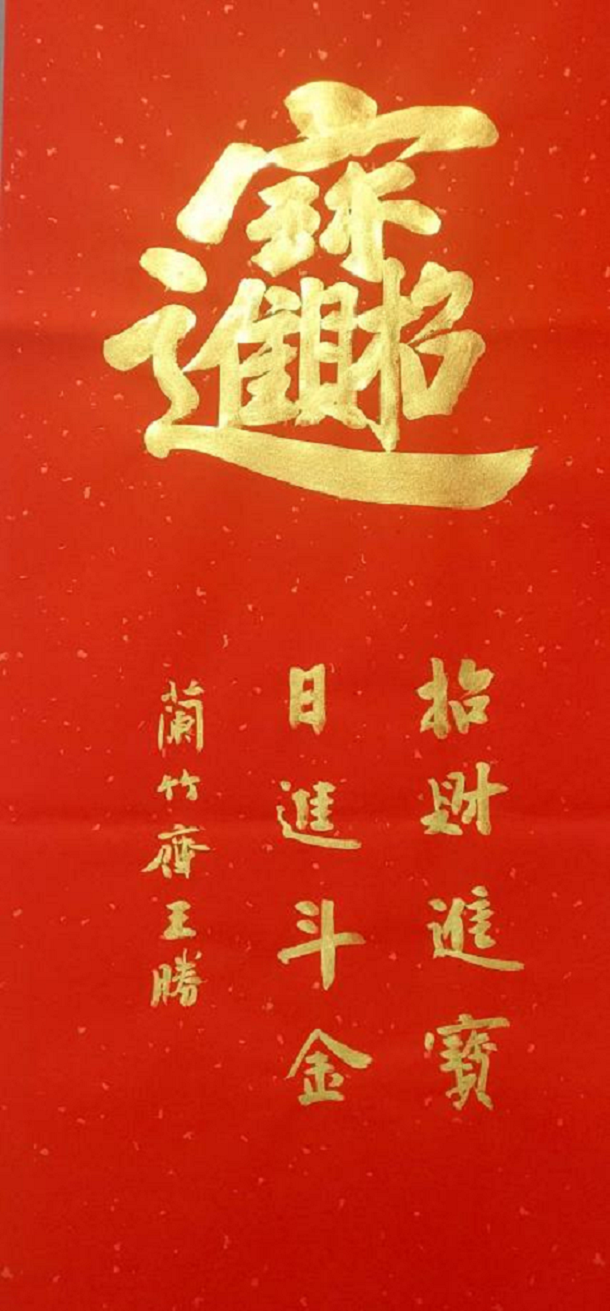 招財進寶
招財進寶
日進斗金
蘭竹齋王勝